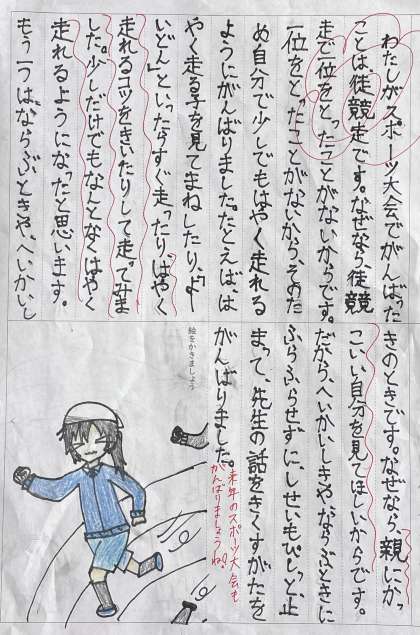 わたしがスポーツ大会でがんばった
ことは、徒競走です。なぜなら徒競
走で一位をと、たことがないからです。
一位をと、たことがないから、そのた
め自分で少しでもはやく走れる
ようにがんばりました。たとえば、は
やく走る子を見てまねしたり、「よー
いどん」といったらすぐ走ったり、はやく
走れるコツをきいたりして走ってみま
した。少しだけでもなんとなくはやく
走れるようになったと思います。
もう一つは、ならぶときや、へいかいし
きのときです。なぜなら、親にかっ
こいい自分を見てほしいからです。
だから、へいかいしきや、ならぶときに
ふらふらせずに、しせいもぴしっと、止
まって、先生の話をきくすがたを
がんばりました。
来年のスポーツ大会も
がんばりましょうね!
絵をかきましょう